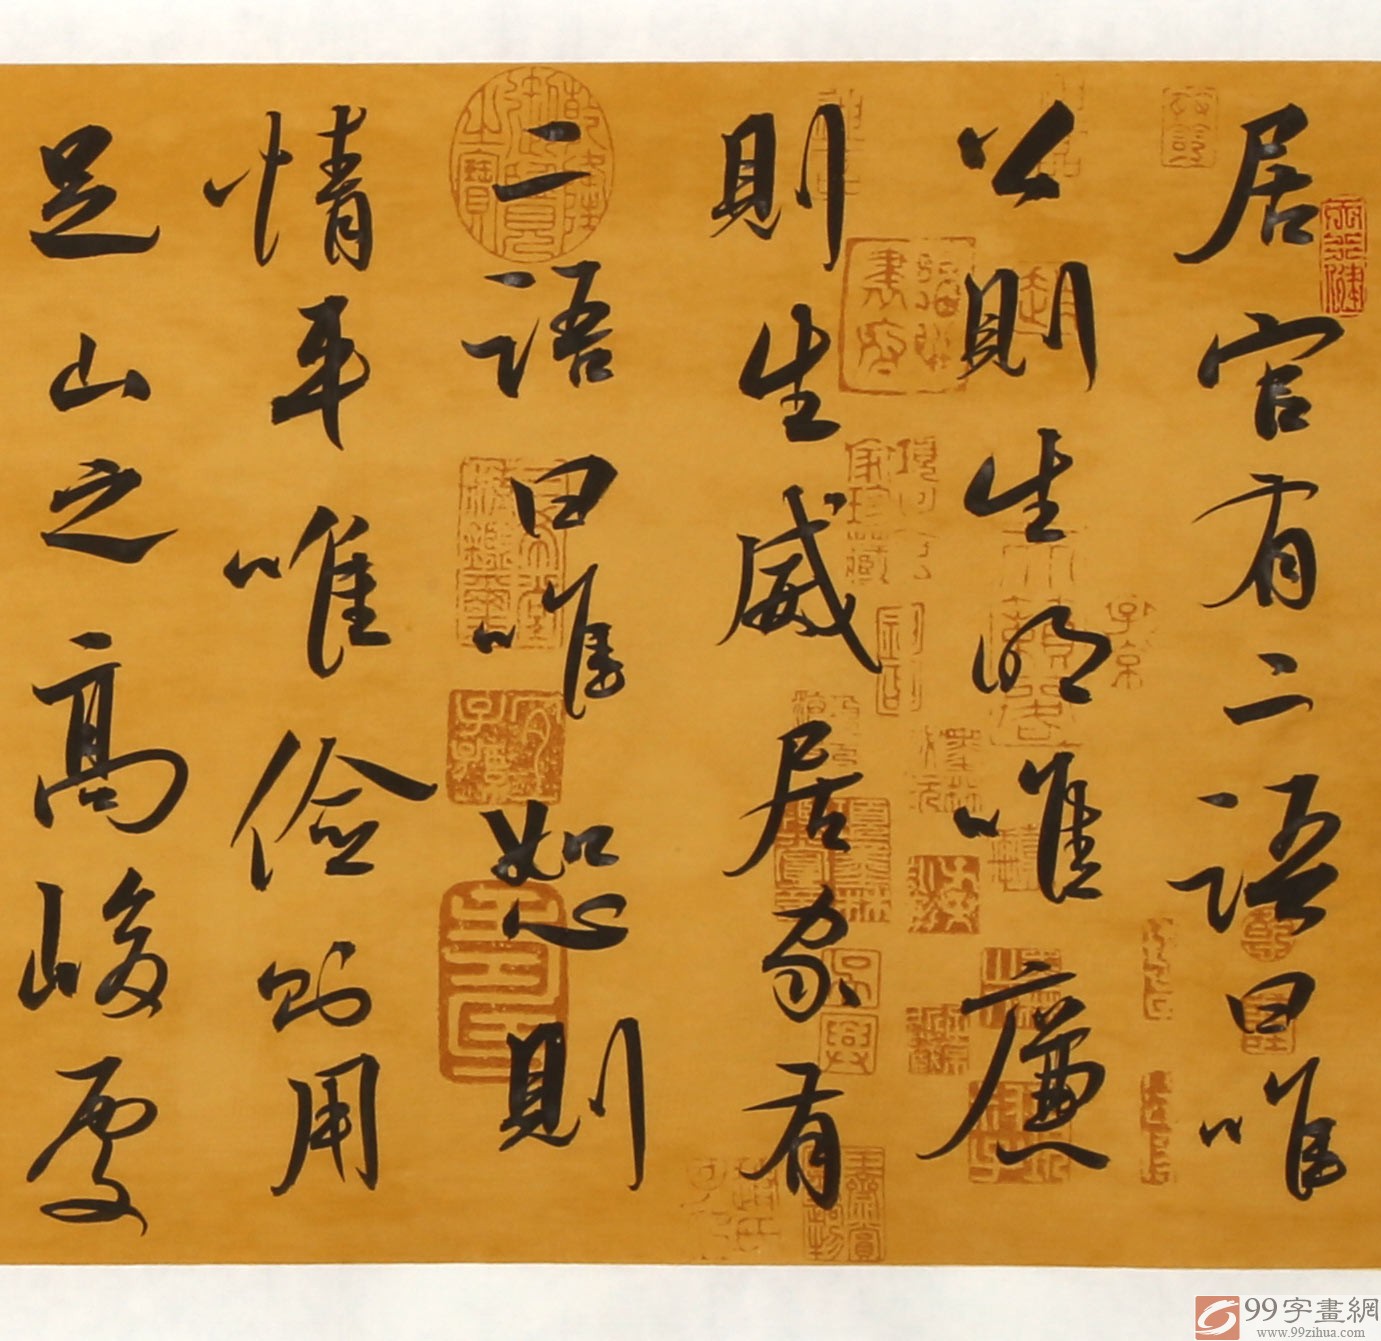 居官有二語曰唯
公則生明唯廉
則生威居家有
二語曰唯恕則
情平唯儉則用
足山之高峻處
99字畫網
www.99zihua.com